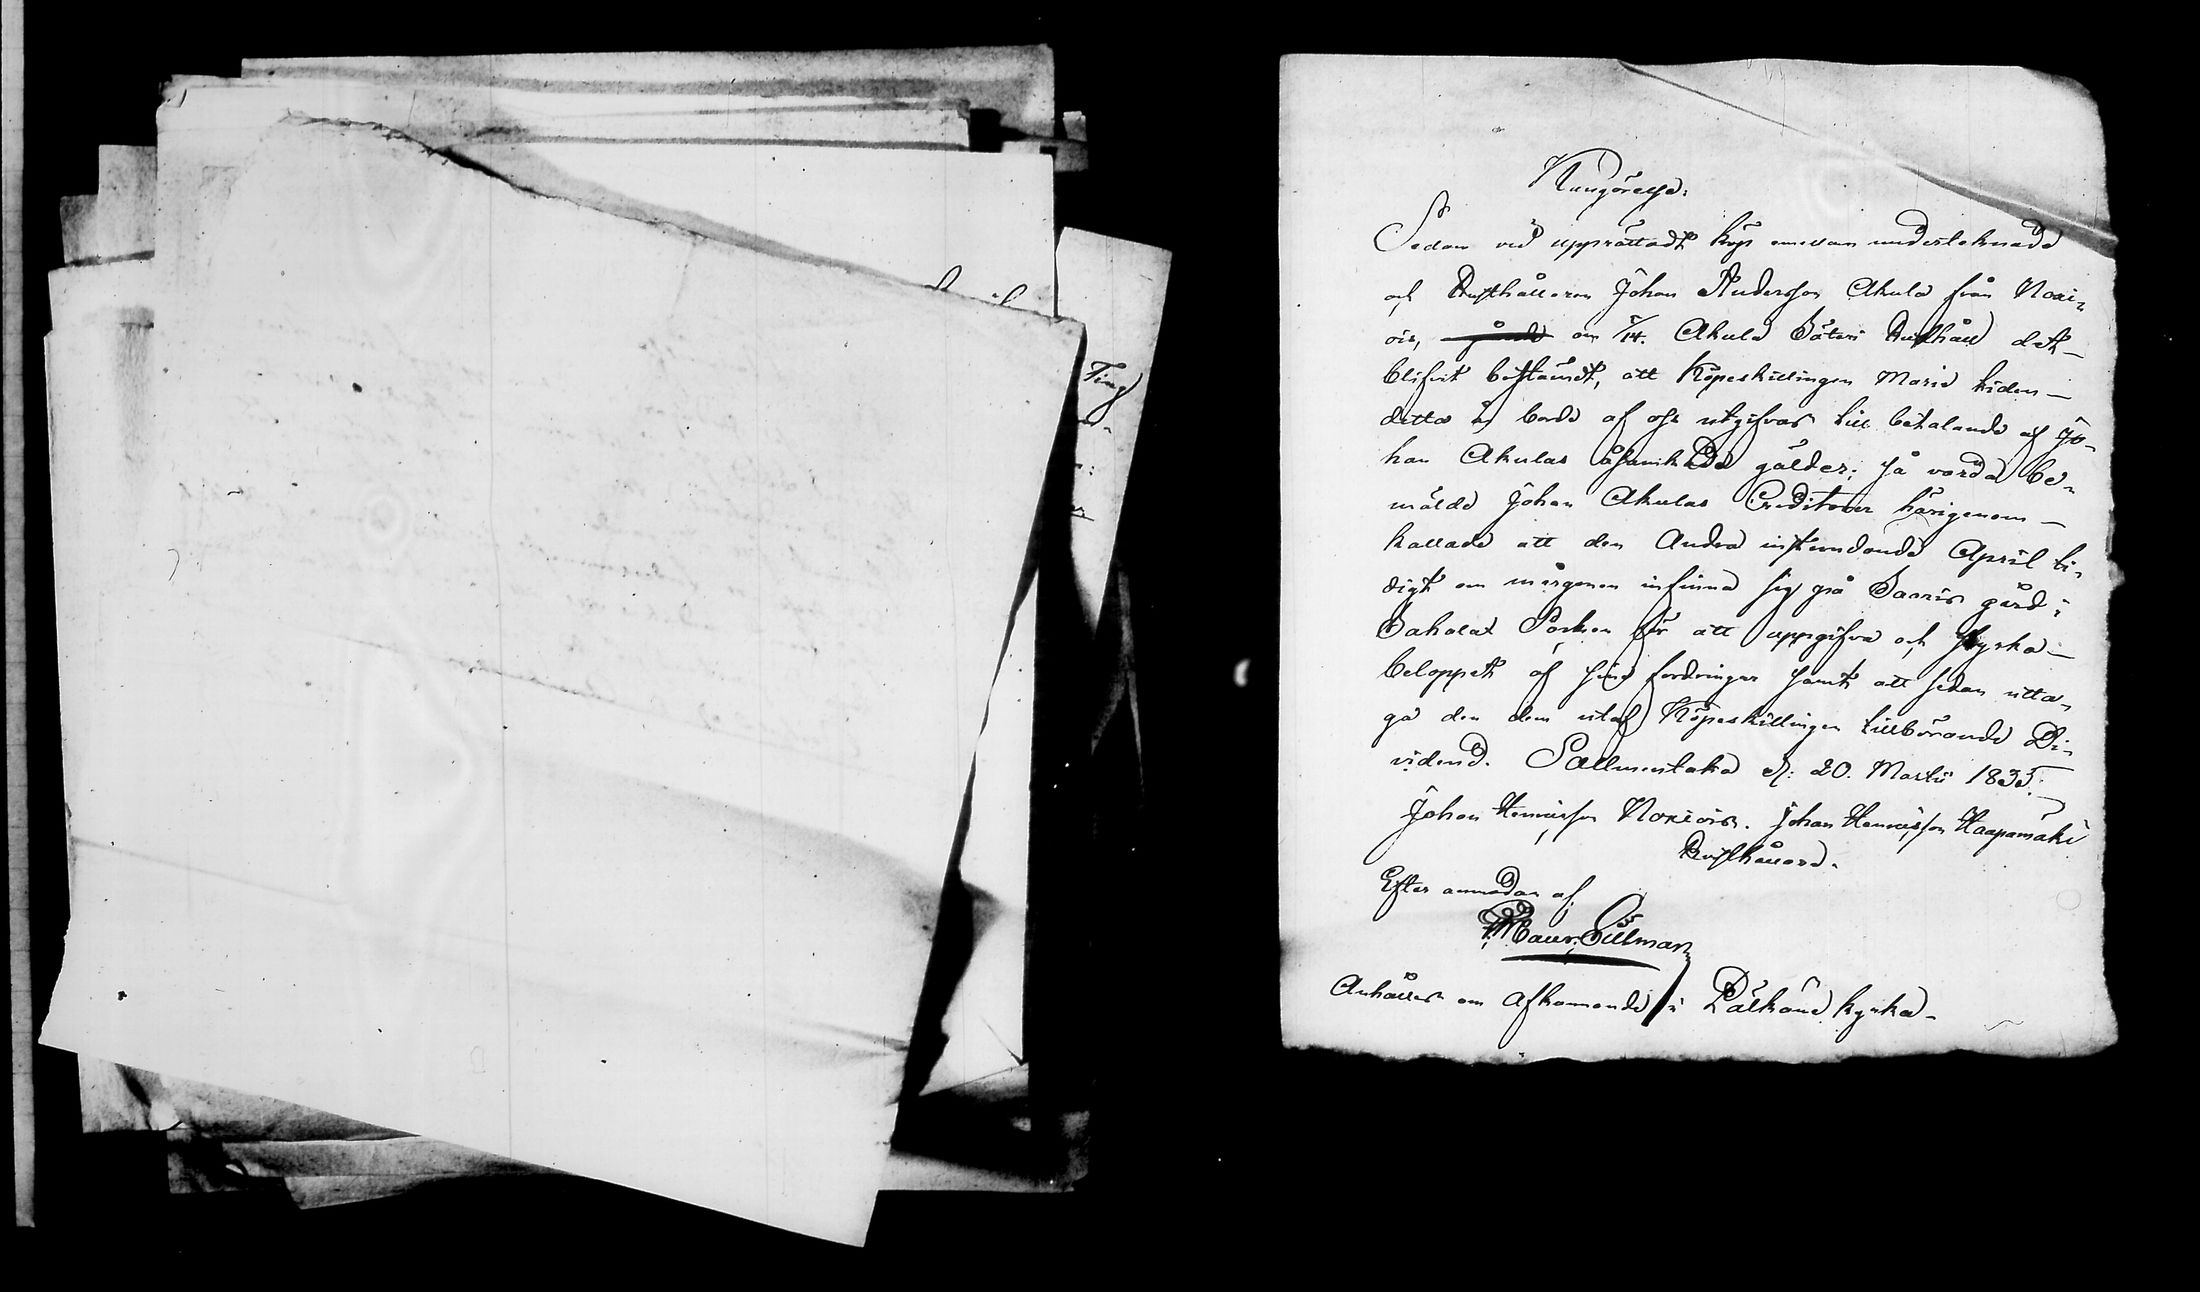 Kungörelse.
Sedan vid upprättadt köp emellan undertecknade
och Rusthållaren Johan Andersson Akula från Noxi-
ois, om 5/14. Akula Säteri Rusthåll det
blifvit bestämdt, att Köpeskillingen Maria tiden
detta år borde af oss utgifvas till betalande af Jo-
han Akulas åsamkade gälder; så varda be-
mälde Johan Akulas Creditorer härigenom
kallade att den Andra instundande April ti-
digt om morgonen infinna sig på Saaris gård i
Sahalax Socken för att uppgifva och styrka
beloppet af sina fordringar samt att sedan utta-
ga den dem utaf Köpeskillingen tillhörande Di-
vidend. Sallmentaka d. 20. Martii 1835.
Johan Henricsson Noxiois. Johan Henricsson Haapamäki
Rusthållare.
Efter anmodan af
Maur. Sillman
Anhålles om afkomande i Pälkäne kyrka.
Ting